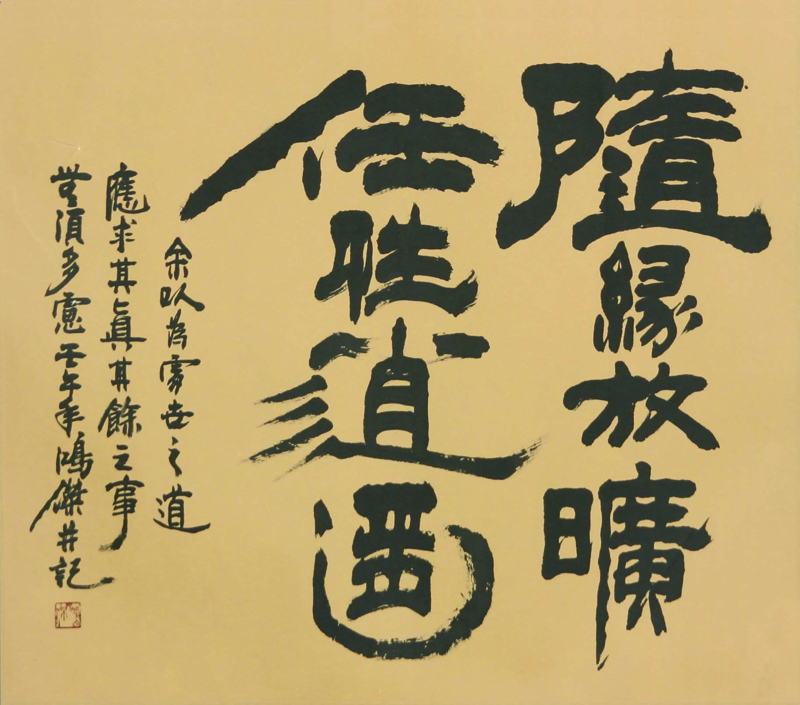 隨緣放曠
任性逍遙
余以為處世之道
應求其眞其餘之事
無須多慮壬午年鴻傑并記